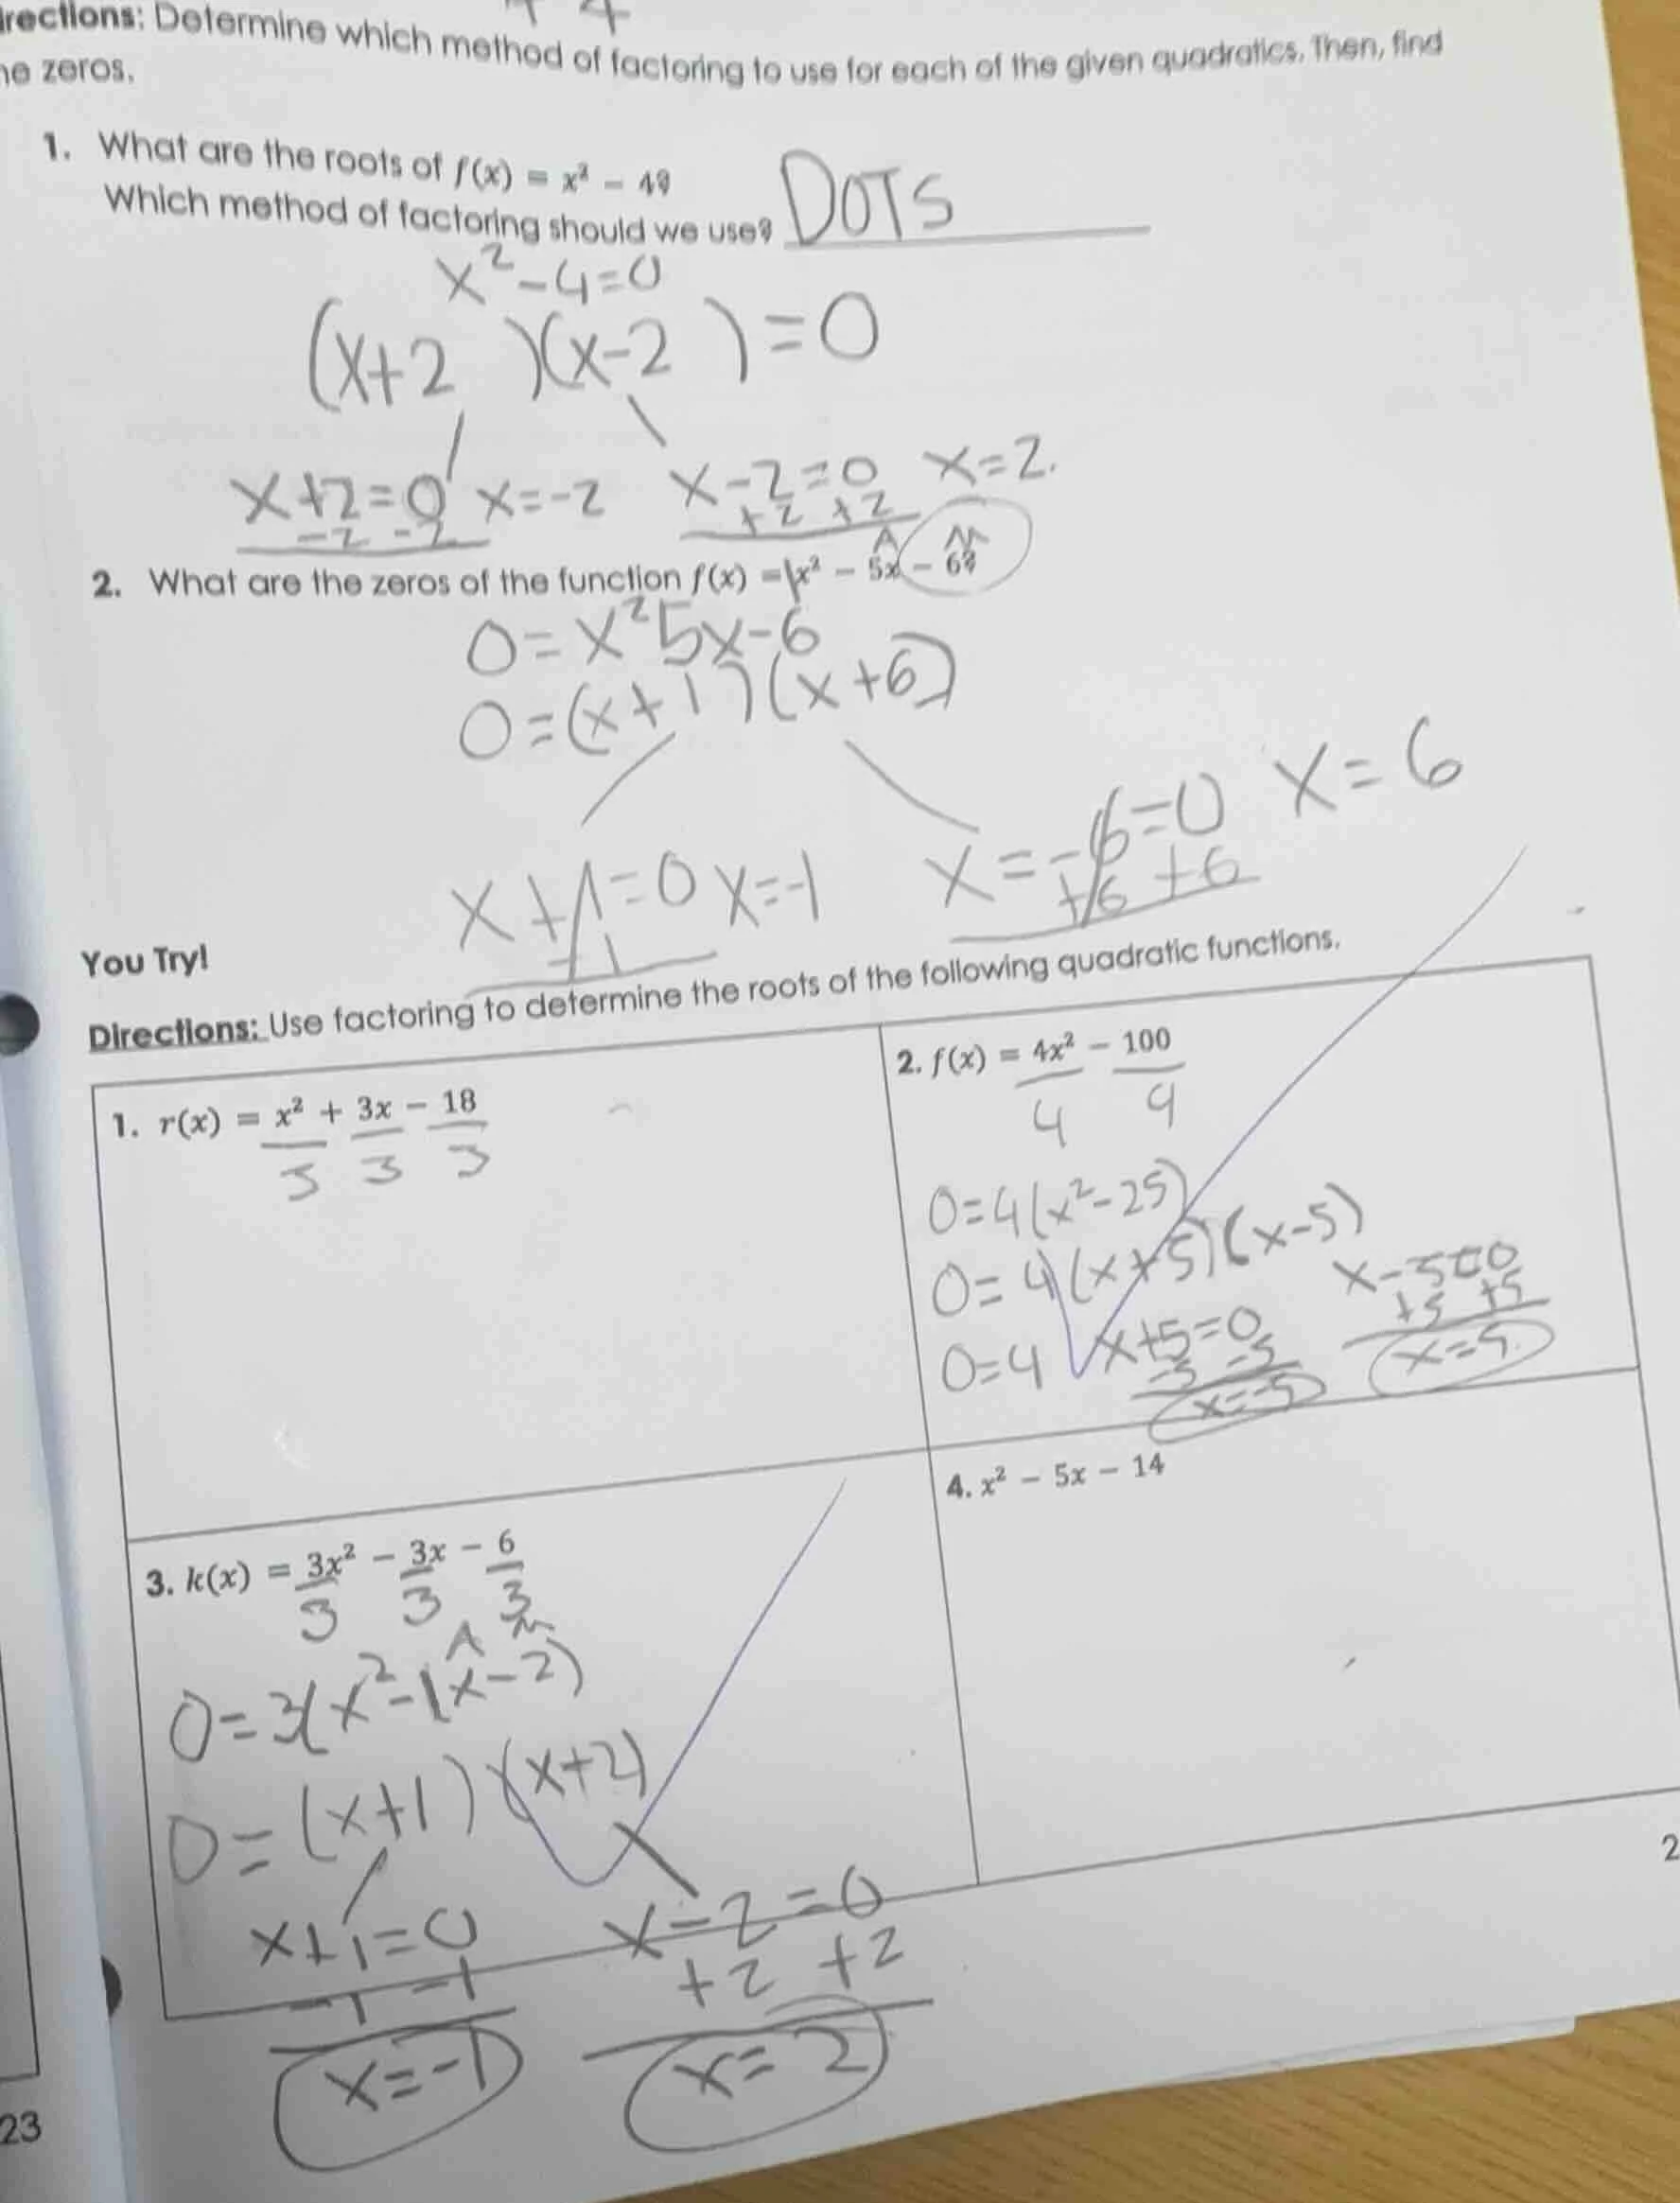 irections: Determine which method of factoring to use for each of the given quadratics. Then, find
he zeros.
1. What are the roots of f(x) = x² − 4?
Which method of factoring should we use? DOTS
x²-4=0
(x+2 )(x-2 )=0
x+2=0 x=-2 x-2=0 x=2.
-2 -2 +2 +2
A M
2. What are the zeros of the function f(x) = 1x² − 5x − 6?
0=x²5x-6
0=(x+1)(x+6)
x+1=0 x=-1 x=-6=0 x=6
-1 +6 +6
You Try!
Directions: Use factoring to determine the roots of the following quadratic functions.
1. r(x) = x² + 3x − 18
3 3 3
2. f(x) = 4x² − 100
4 4
0=4(x²-25)
0=4(x+5)(x-5)
0=4 x+5=0 x-5=0
-5 -5 +5 +5
x=-5 x=5.
3. k(x) = 3x² − 3x − 6
3 3 3
A M
0=3(x²-1x-2)
0=(x+1)(x+2)
x+1=0 x-2=0
-1 -1 +2 +2
x=-1 x=2
4. x² − 5x − 14
2
23